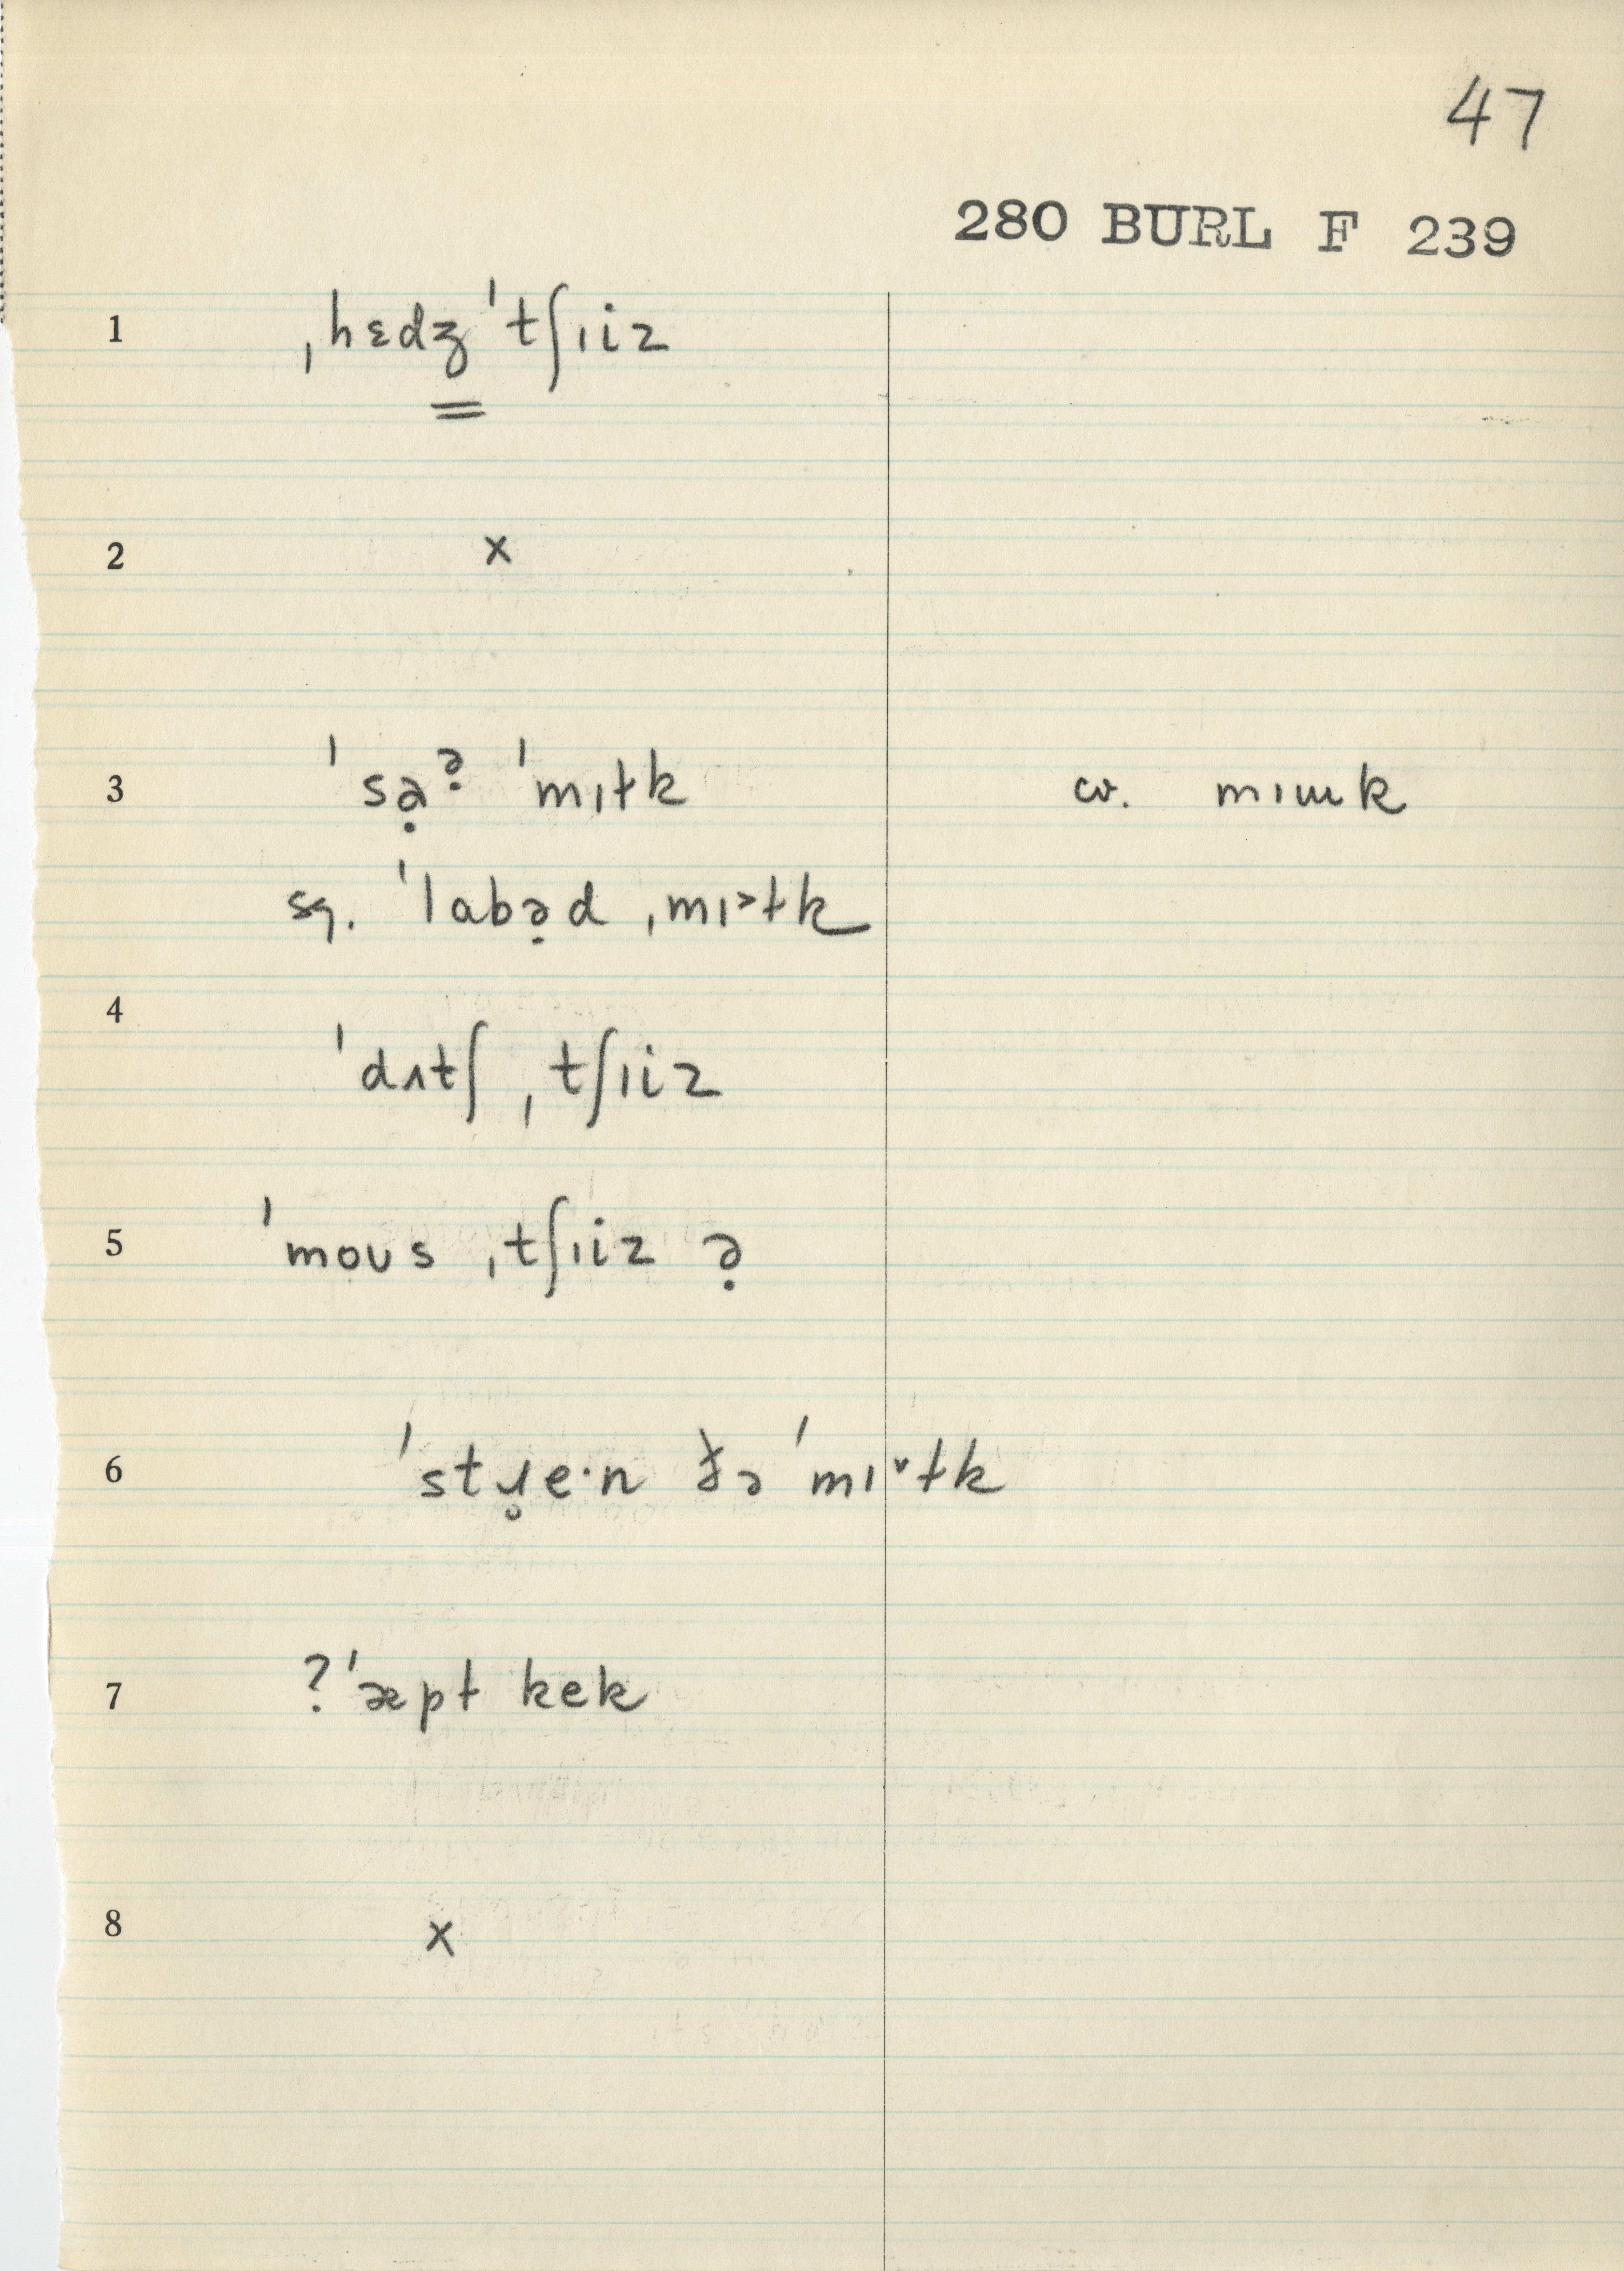 47
280 BURL F 239
1 ˌhɛdʒˈtʃɪiz
2 x
3 ˈsə̣ᵊ̣ ˈmɪɫk cv. mɪɯk
sq. ˈlabə̣d ˌmɪ˃ɫk
4 ˈdʌtʃ ˌtʃɪiz
5 ˈmoʊs ˌtʃɪiz ə̣
6 ˈstɹ̥e·n ðə ˈmɪ˅ɫk
7 ?ˈæpɫ kek
8 x